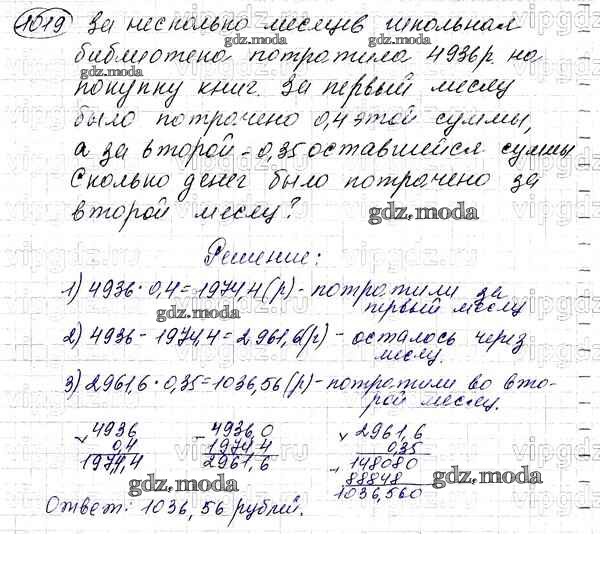 1019 За несколько месяцев школьная
библиотека потратила 4936р. на
покупку книг. За первый месяц
было потрачено 0,4 этой суммы,
а за второй - 0,35 оставшейся суммы
Сколько денег было потрачено за
второй месяц?
Решение:
1) 4936 · 0,4 = 1974,4 (р) - потратили за
первый месяц
2) 4936 - 1974,4 = 2961,6 (р) - осталось через
месяц.
3) 2961,6 · 0,35 = 1036,56 (р) - потратили во вто-
рой месяц.
× 4936
0,4
1974,4
- 4936,0
1974,4
2961,6
× 2961,6
0,35
+ 148080
88848
1036,560
Ответ: 1036,56 рублей.
gdz.moda
gdz.moda
gdz.moda
gdz.moda
gdz.moda
gdz.moda
gdz.moda